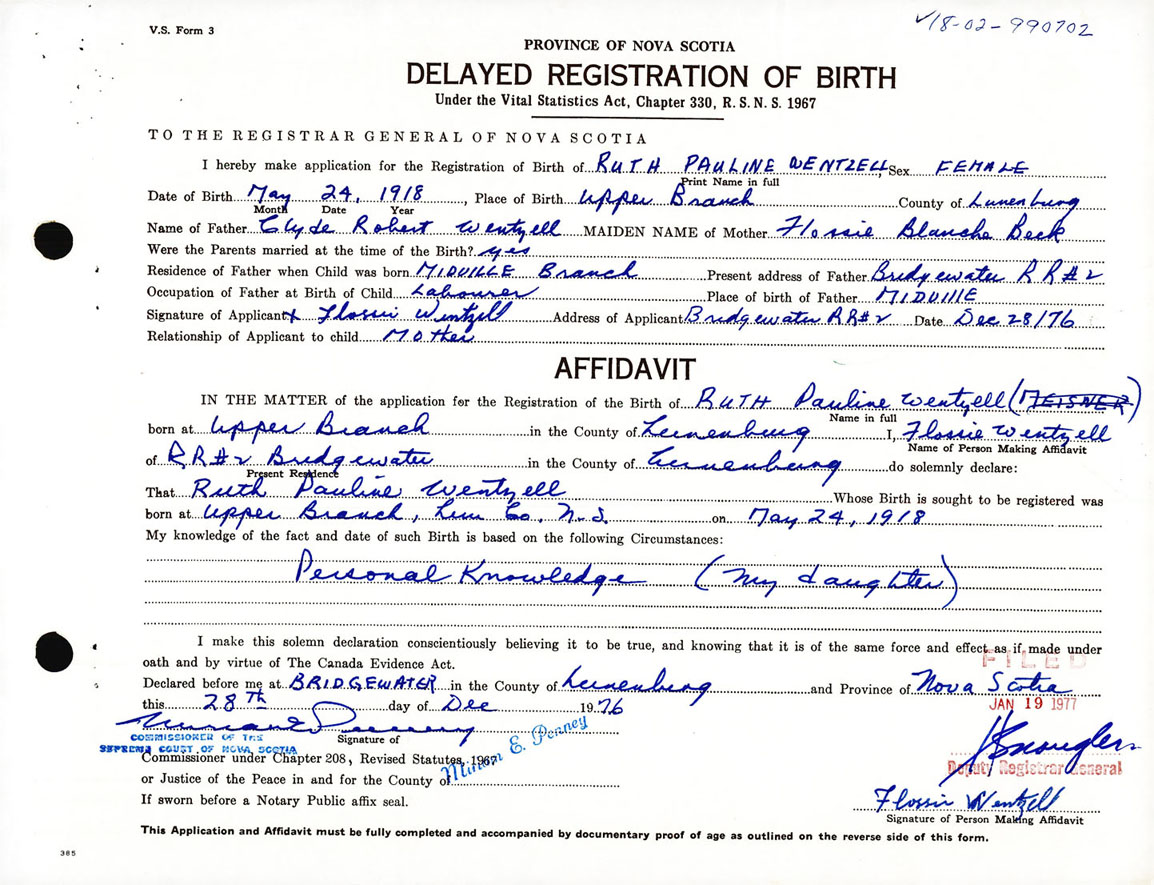 V.S. Form 3
✓18-02-990702
PROVINCE OF NOVA SCOTIA
DELAYED REGISTRATION OF BIRTH
Under the Vital Statistics Act, Chapter 330, R. S. N. S. 1967
TO THE REGISTRAR GENERAL OF NOVA SCOTIA
I hereby make application for the Registration of Birth of RUTH PAULINE WENTZELL, Sex FEMALE
Print Name in full
Date of Birth May 24, 1918, Place of Birth Upper Branch County of Lunenburg
Month Date Year
Name of Father Clyde Robert Wentzell MAIDEN NAME of Mother Flossie Blanche Beck
Were the Parents married at the time of the Birth? yes
Residence of Father when Child was born MIDVILLE Branch Present address of Father Bridgewater RR#2
Occupation of Father at Birth of Child Labourer Place of birth of Father MIDVIlle
Signature of Applicant X Flossie Wentzell Address of Applicant Bridgewater RR#2 Date Dec 28/76
Relationship of Applicant to child Mother
AFFIDAVIT
IN THE MATTER of the application for the Registration of the Birth of RUTH Pauline Wentzell (MEISNER)
Name in full
born at Upper Branch in the County of Lunenburg I, Flossie Wentzell
Name of Person Making Affidavit
of RR#2 Bridgewater in the County of Lunenburg do solemnly declare:
Present Residence
That Ruth Pauline Wentzell Whose Birth is sought to be registered was
born at Upper Branch, Lun Co, N.S. on May 24, 1918
My knowledge of the fact and date of such Birth is based on the following Circumstances:
Personal Knowledge (My daughter)
I make this solemn declaration conscientiously believing it to be true, and knowing that it is of the same force and effect as if made under
oath and by virtue of The Canada Evidence Act.
FILED
Declared before me at BRIDGEWATER in the County of Lunenburg and Province of Nova Scotia
this 28Th day of Dec 1976
JAN 19 1977
COMMISSIONER OF THE
SUPREME COURT OF NOVA SCOTIA
Signature of
Commissioner under Chapter 208, Revised Statutes, 1967
E. Penney
Deputy Registrar General
or Justice of the Peace in and for the County of
If sworn before a Notary Public affix seal.
Flossie Wentzell
Signature of Person Making Affidavit
This Application and Affidavit must be fully completed and accompanied by documentary proof of age as outlined on the reverse side of this form.
385